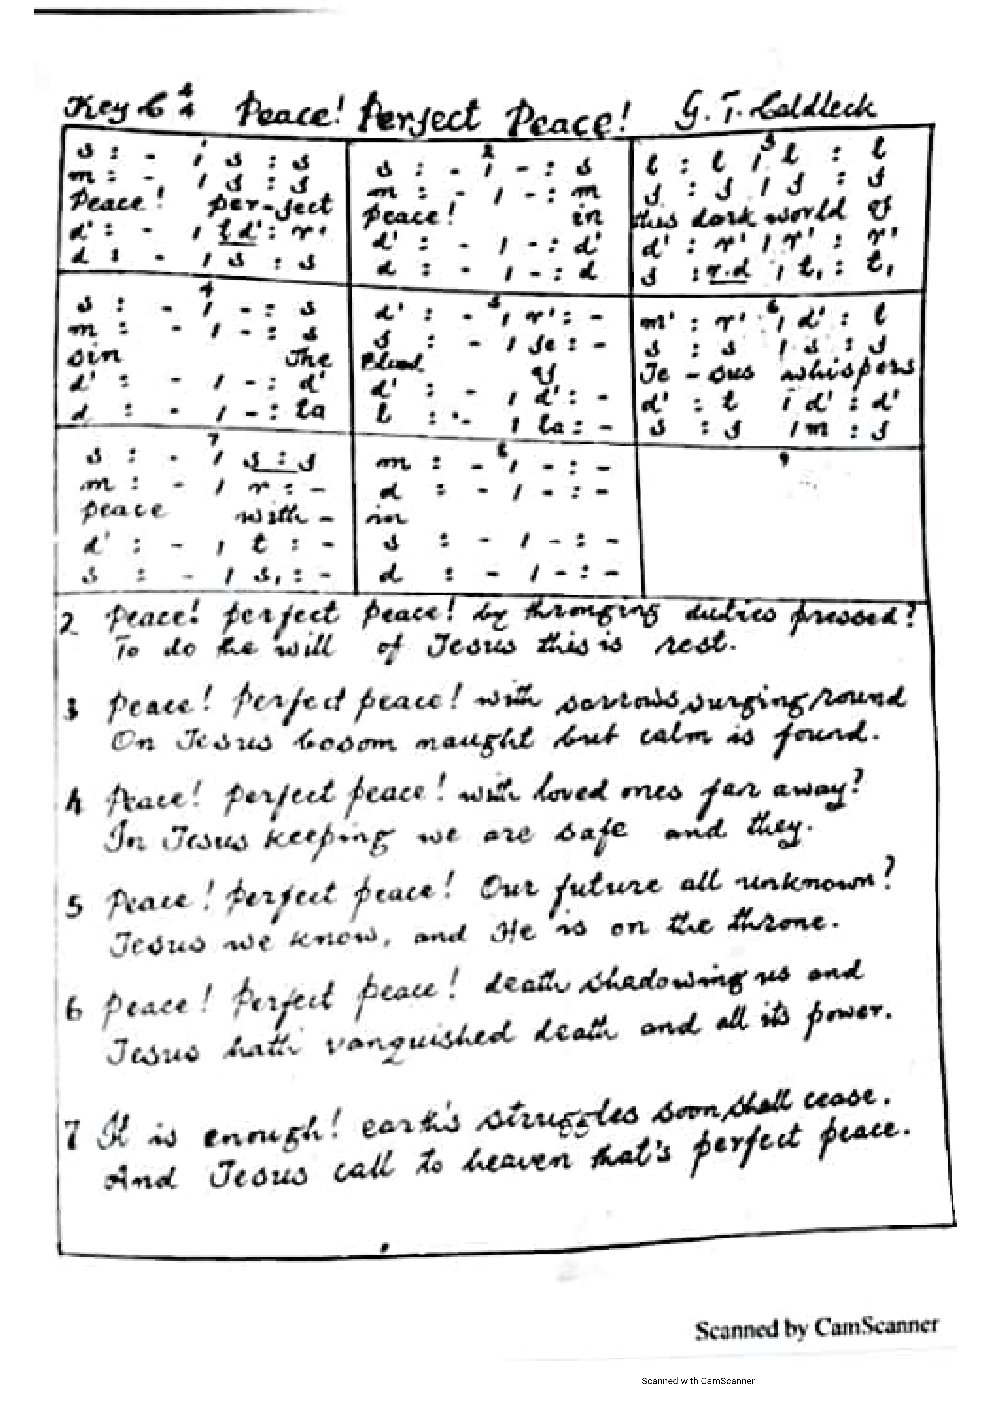 Key C 4/4 Peace! Perfect Peace! G. T. Caldleck
1
s : - / s : s
m : - / s : s
Peace! per-fect
d' : - / t d' : r'
d : - / s : s
2
s : - / - : s
m : - / - : m
peace! in
d' : - / - : d'
d : - / - : d
3
l : l / l : l
f : f / f : f
this dark world of
d' : r' / r' : r'
s : r.d / t, : t,
4
s : - / - : s
m : - / - : s
sin The
d' : - / - : d'
d : - / - : ta
5
d' : - / r' : -
s : - / fe : -
Blood of
d' : - / d' : -
l : - / la : -
6
m' : r' / d' : l
s : s / s : f
Je - sus whispers
d' : t / d' : d'
s : f / m : f
7
s : - / s : f
m : - / r : -
peace with -
d' : - / t : -
s : - / s, : -
8
m : - / - : -
d : - / - : -
in
s : - / - : -
d : - / - : -
9
2 Peace! perfect peace! by thronging duties pressed?
To do he will of Jesus this is rest.
3 Peace! Perfect peace! with sorrows surging round
On Jesus bosom naught but calm is found.
4 Peace! perfect peace! with loved ones far away?
In Jesus keeping we are safe and they.
5 Peace! perfect peace! Our future all unknown?
Jesus we know, and He is on the throne.
6 Peace! Perfect peace! death shadowing us and
Jesus hath vanquished death and all its power.
7 It is enough! earth's struggles soon shall cease.
And Jesus call to heaven that's perfect peace.
Scanned by CamScanner
Scanned with CamScanner